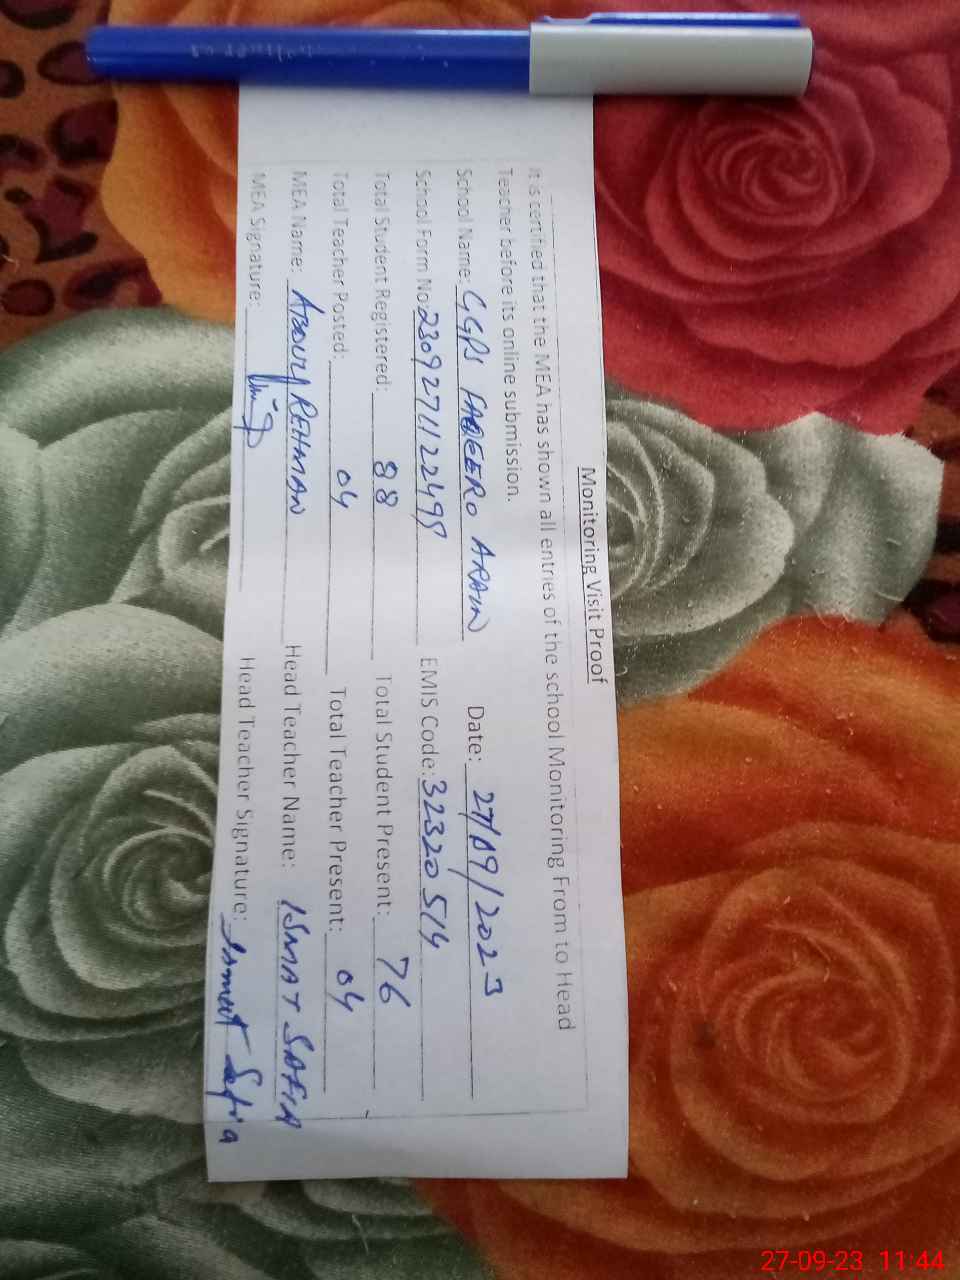 Monitoring Visit Proof
It is certified that the MEA has shown all entries of the school Monitoring From to Head
Teacher before its online submission.
School Name: GGPS ARAIN Date: 27/09/2023
School Form No: EMIS Code: 32320514
Total Student Registered: 88 Total Student Present: 76
Total Teacher Posted: 04 Total Teacher Present: 04
MEA Name: ABDUL REHMAN Head Teacher Name: ISMAT SAFIA
MEA Signature: Head Teacher Signature: Ismat Safia
27-09-23 11:44